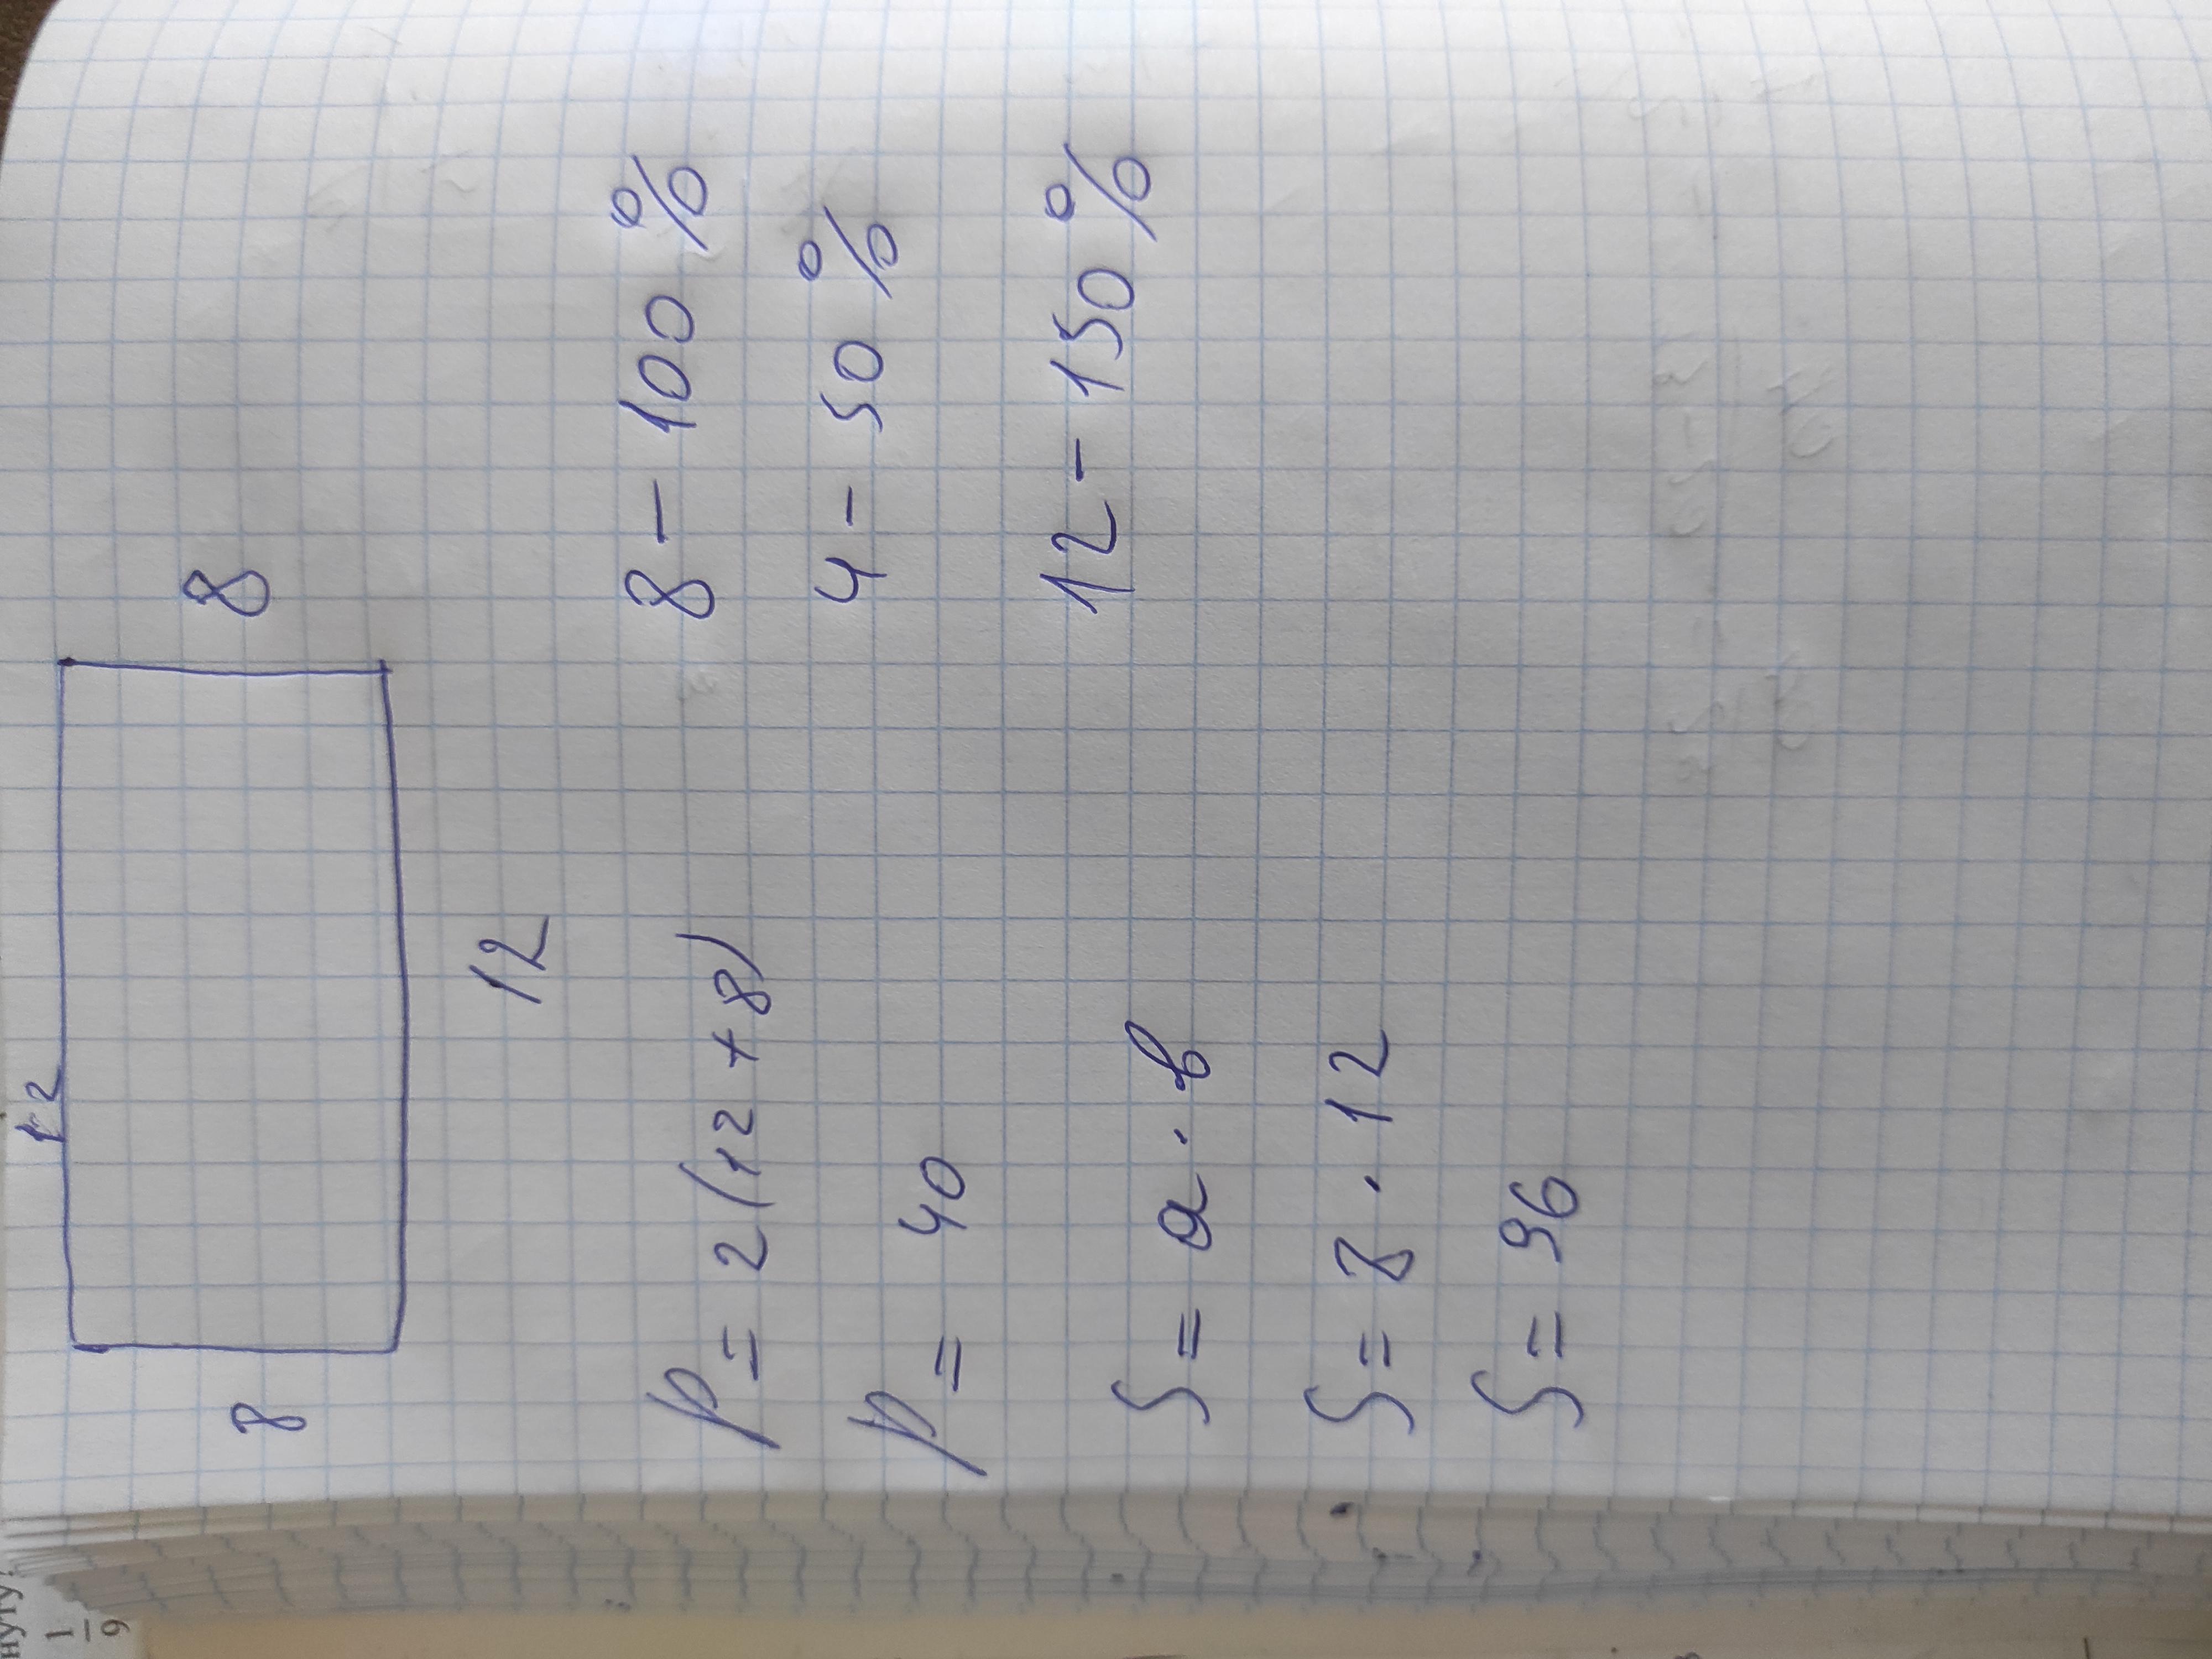 12
8
8
12
P = 2(12 + 8)
P = 40
S = a · b
S = 8 · 12
S = 96
8 - 100 %
4 - 50 %
12 - 150 %
нуту.
1
9